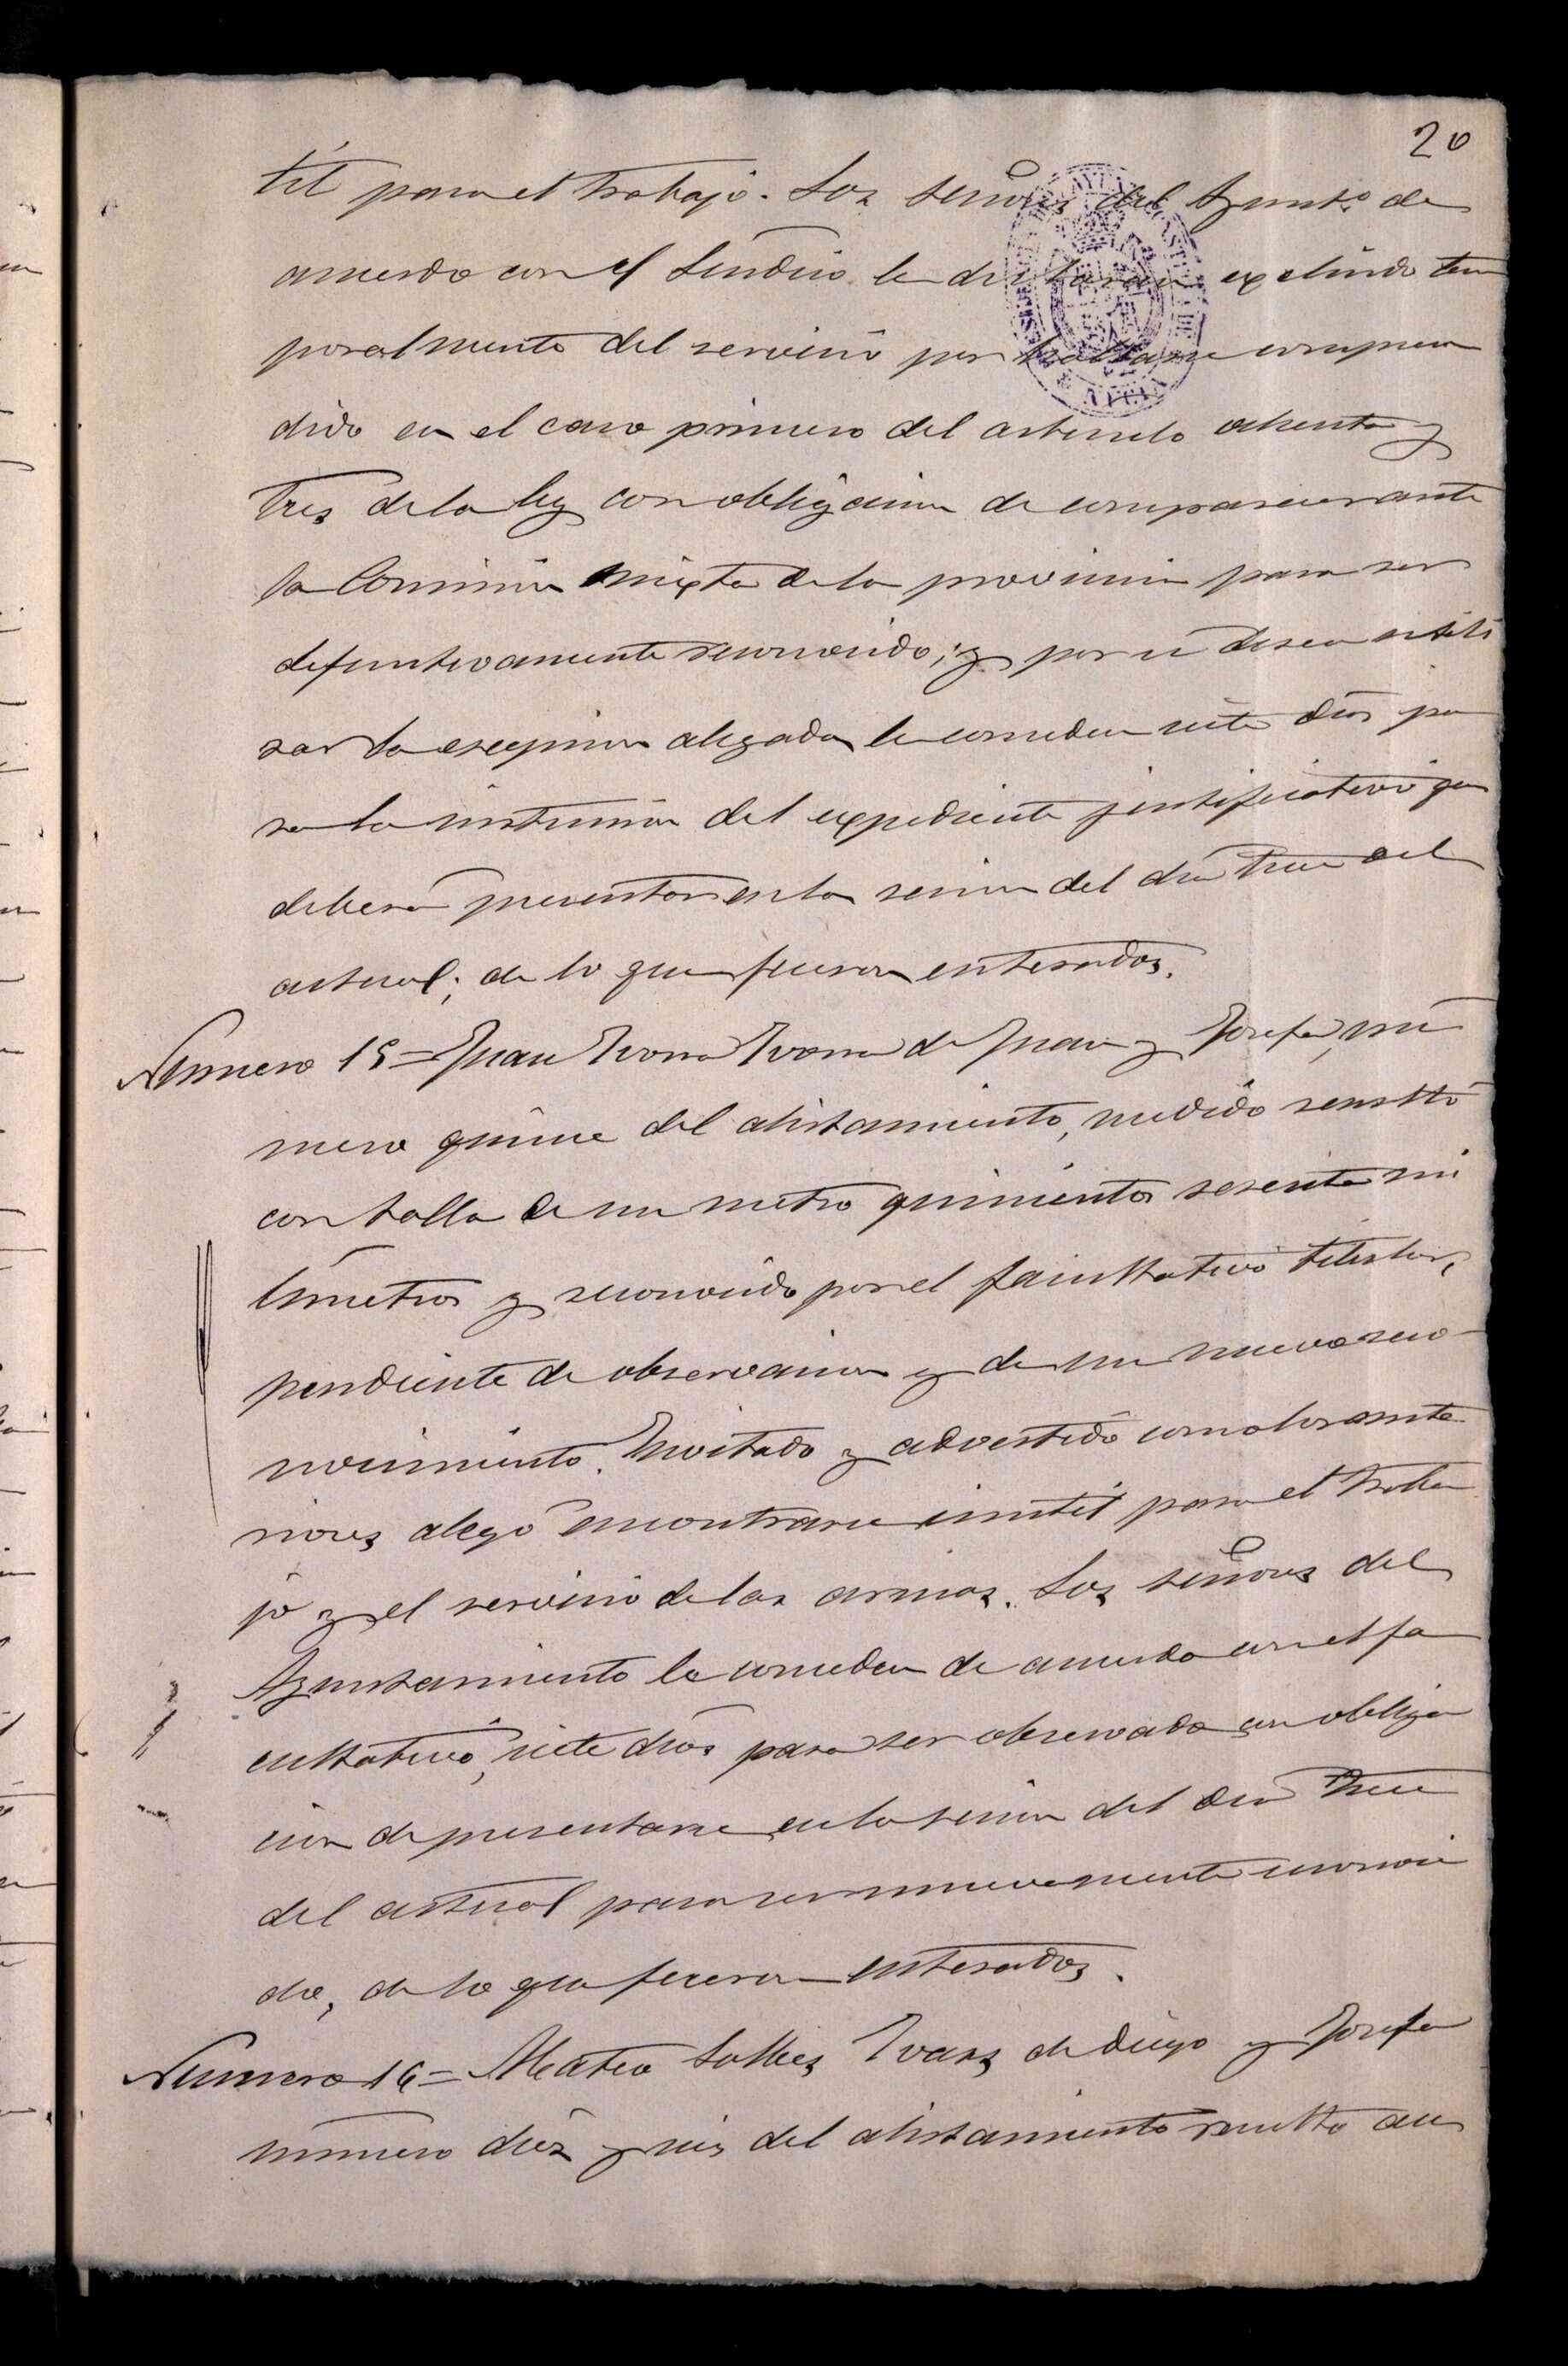 20
til para el trabajo. Los señores del Ayunto. de
acuerdo con el Sindico le declararon excluido tem
poralmente del servicio por hallarse compren
dido en el caso primero del articulo ochenta y
tres de la ley con obligacion de comparecer ante
la Comision mixta de la provincia para ser
definitivamente reconocido; y por si desea utili
zar la escepcion alegada le conceden siete dias pa
ra la instruccion del expediente justificativo que
deberá presentar en la sesion del dia trece del
actual; de lo que fueron enterados.
Numero 15 = Juan Ivorra Ivorra de Juan y Josefa, nú
mero quince del alistamiento, medido resultó
con talla de un metro quinientos sesenta mi
límetros y reconocido por el facultativo titular,
pendiente de observacion y de un nuevo reco-
nocimiento. Invitado y advertido como los ante
riores alegó encontrarse inutil para el traba
jo y el servicio de las armas. Los señores del
Ayuntamiento le conceden de acuerdo con el fa
cultativo, siete dias para ser observado con obliga
cion de presentarse en la sesion del dia trece
del actual para ser nuevamente reconoci
do, de lo que fueron enterados.
Numero 16 = Mateo Solbes Ivars de Diego y Josefa
número diez y seis del alistamiento resultó au